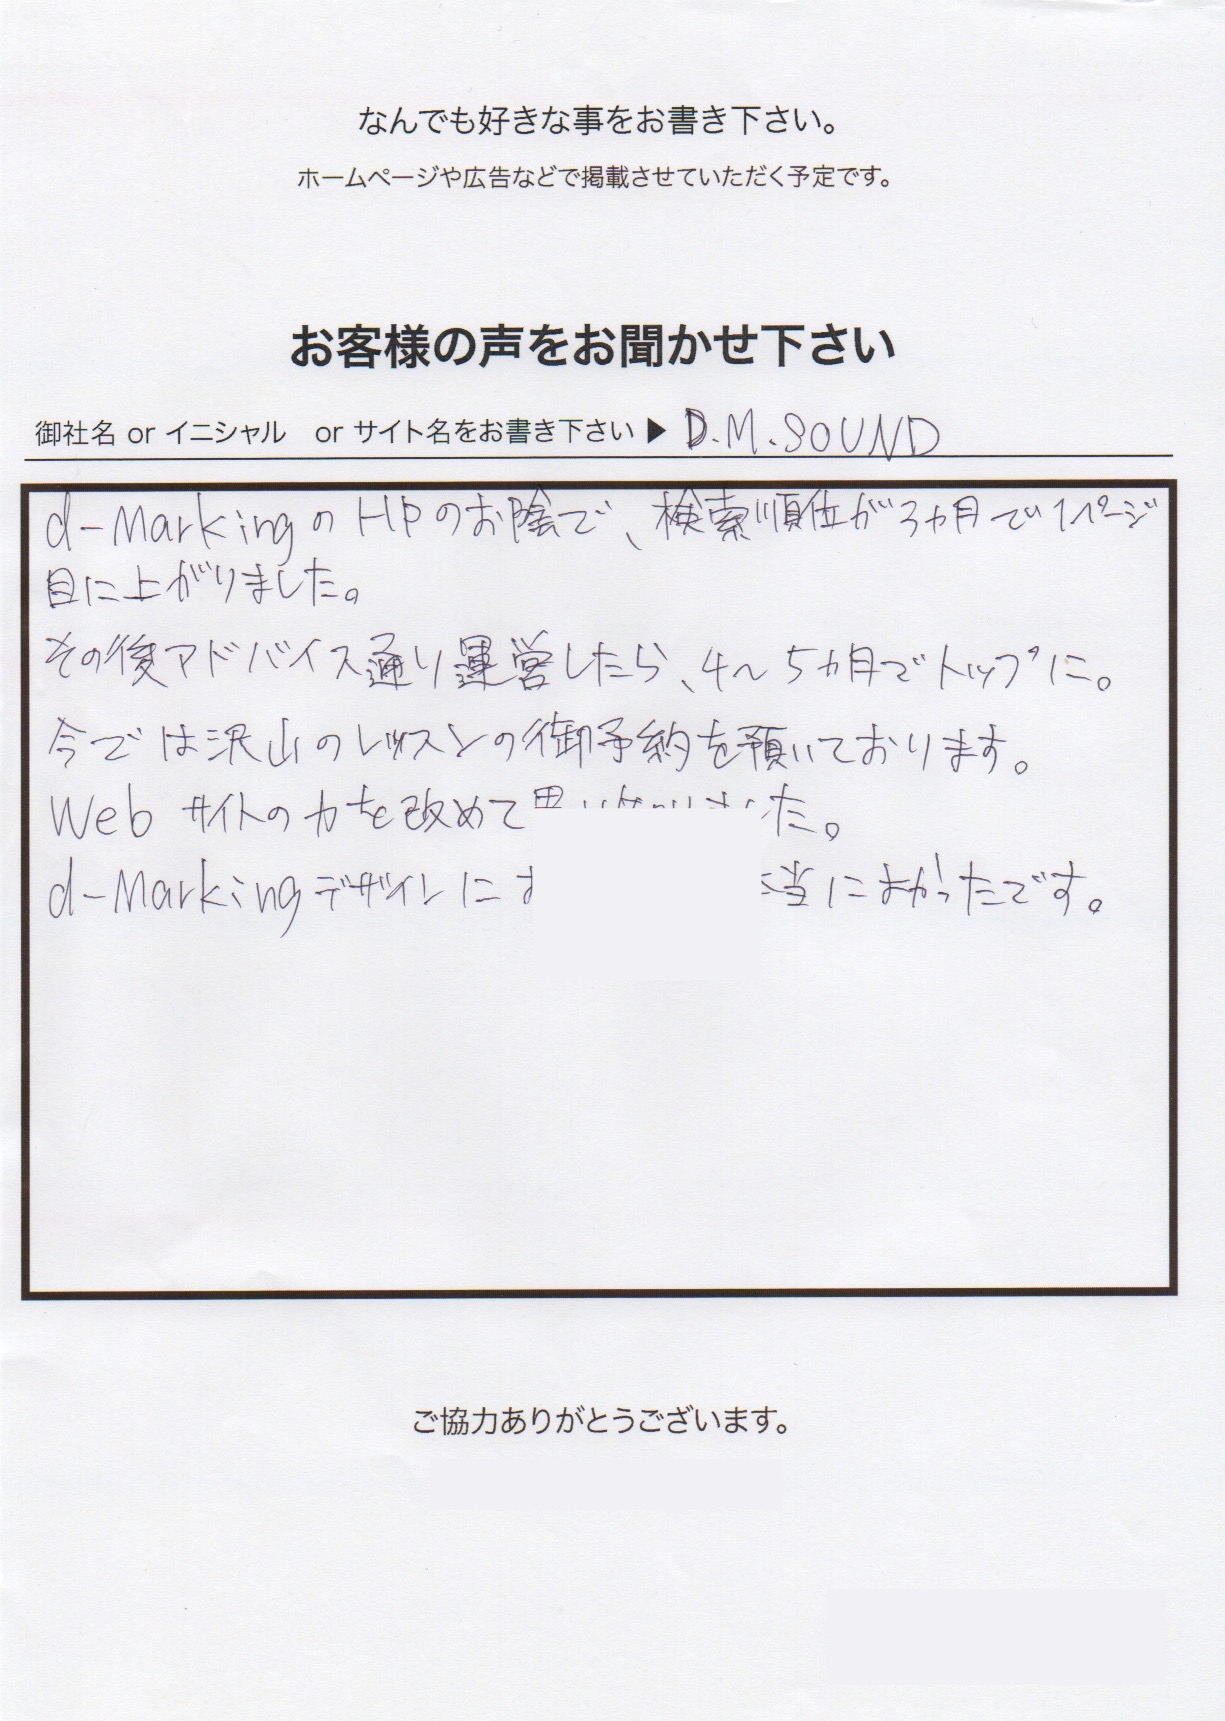 なんでも好きな事をお書き下さい。
ホームページや広告などで掲載させていただく予定です。
お客様の声をお聞かせ下さい
御社名 or イニシャル or サイト名をお書き下さい ▶ D.M.SOUND
d-MarkingのHPのお陰で、検索順位が3ヵ月で1ページ
目に上がりました。
その後アドバイス通り運営したら、4〜5ヵ月でトップに。
今では沢山のレッスンの御予約を預いております。
Webサイトの力を改めて思い知りました。
d-Markingデザインに 当によかったです。
ご協力ありがとうございます。